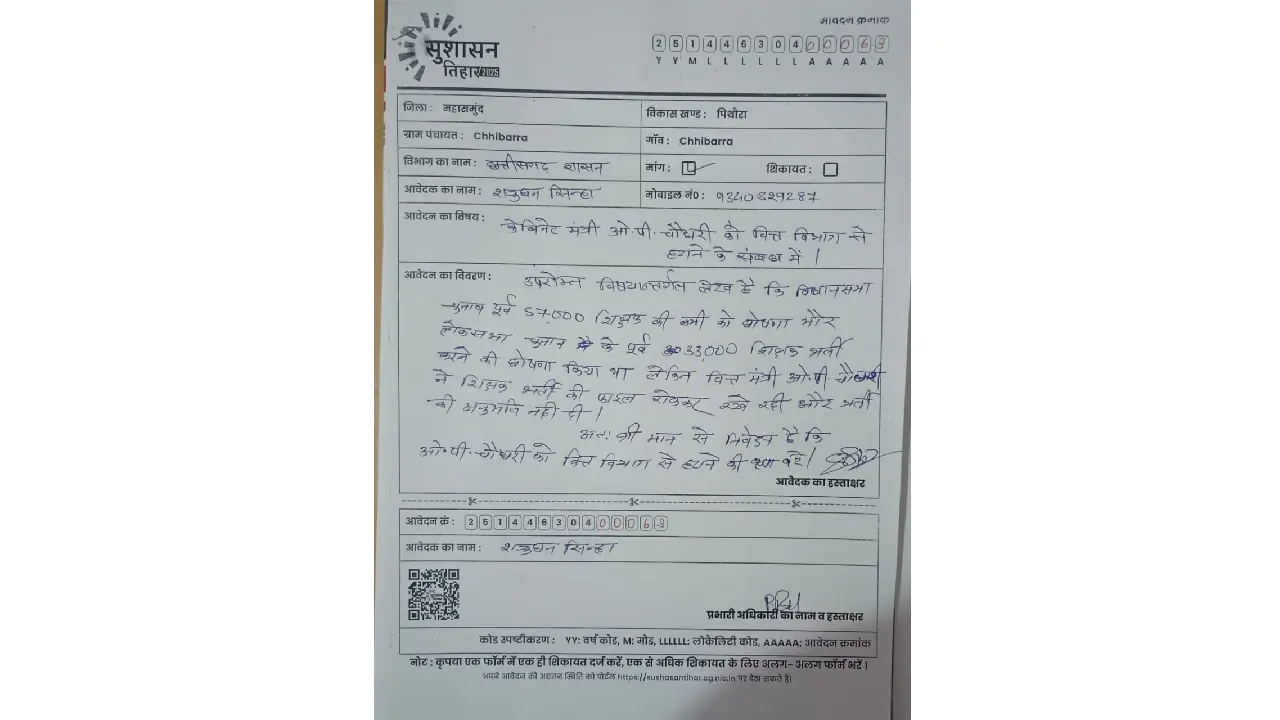 सुशासन
तिहार 2025
आवेदन क्रमांक
2 5 1 4 4 6 3 0 4 0 0 0 6 3
Y Y M L L L L L L A A A A A
जिला : महासमुंद
विकास खण्ड : पिथौरा
ग्राम पंचायत : Chhibarra
गाँव : Chhibarra
विभाग का नाम : छत्तीसगढ़ शासन
मांग :
शिकायत :
आवेदक का नाम : शत्रुघन सिन्हा
मोबाइल नं० : 9340829287
आवेदन का विषय : केबिनेट मंत्री ओ.पी. चौधरी को वित्त विभाग से
हटाने के संबंध में |
आवेदन का विवरण : उपरोक्त विषयान्तर्गत लेख है कि विधानसभा
चुनाव पूर्व 57,000 शिक्षक की भर्ती की घोषणा और
लोकसभा चुनाव के पूर्व 33,000 शिक्षक भर्ती
करने की घोषणा किया था लेकिन वित्त मंत्री ओ.पी. चौधरी
ने शिक्षक भर्ती की फाइल रोककर रखे रही और भर्ती
की अनुमति नहीं दी |
अतः श्री मान से निवेदन है कि
ओ.पी. चौधरी को वित्त विभाग से हटाने की कृपा करें |
आवेदक का हस्ताक्षर
आवेदन कं : 2 5 1 4 4 6 3 0 4 0 0 0 6 3
आवेदक का नाम : शत्रुघन सिन्हा
प्रभारी अधिकारी का नाम व हस्ताक्षर
कोड स्पष्टीकरण : YY: वर्ष कोड, M: मोड, LLLLLL: लोकेलिटी कोड, AAAAA: आवेदन क्रमांक
नोट : कृपया एक फॉर्म में एक ही शिकायत दर्ज करें, एक से अधिक शिकायत के लिए अलग- अलग फॉर्म भरें |
अपने आवेदन की अद्यतन स्थिति को पोर्टल https://sushasantihar.cg.nic.in पर देख सकते है|